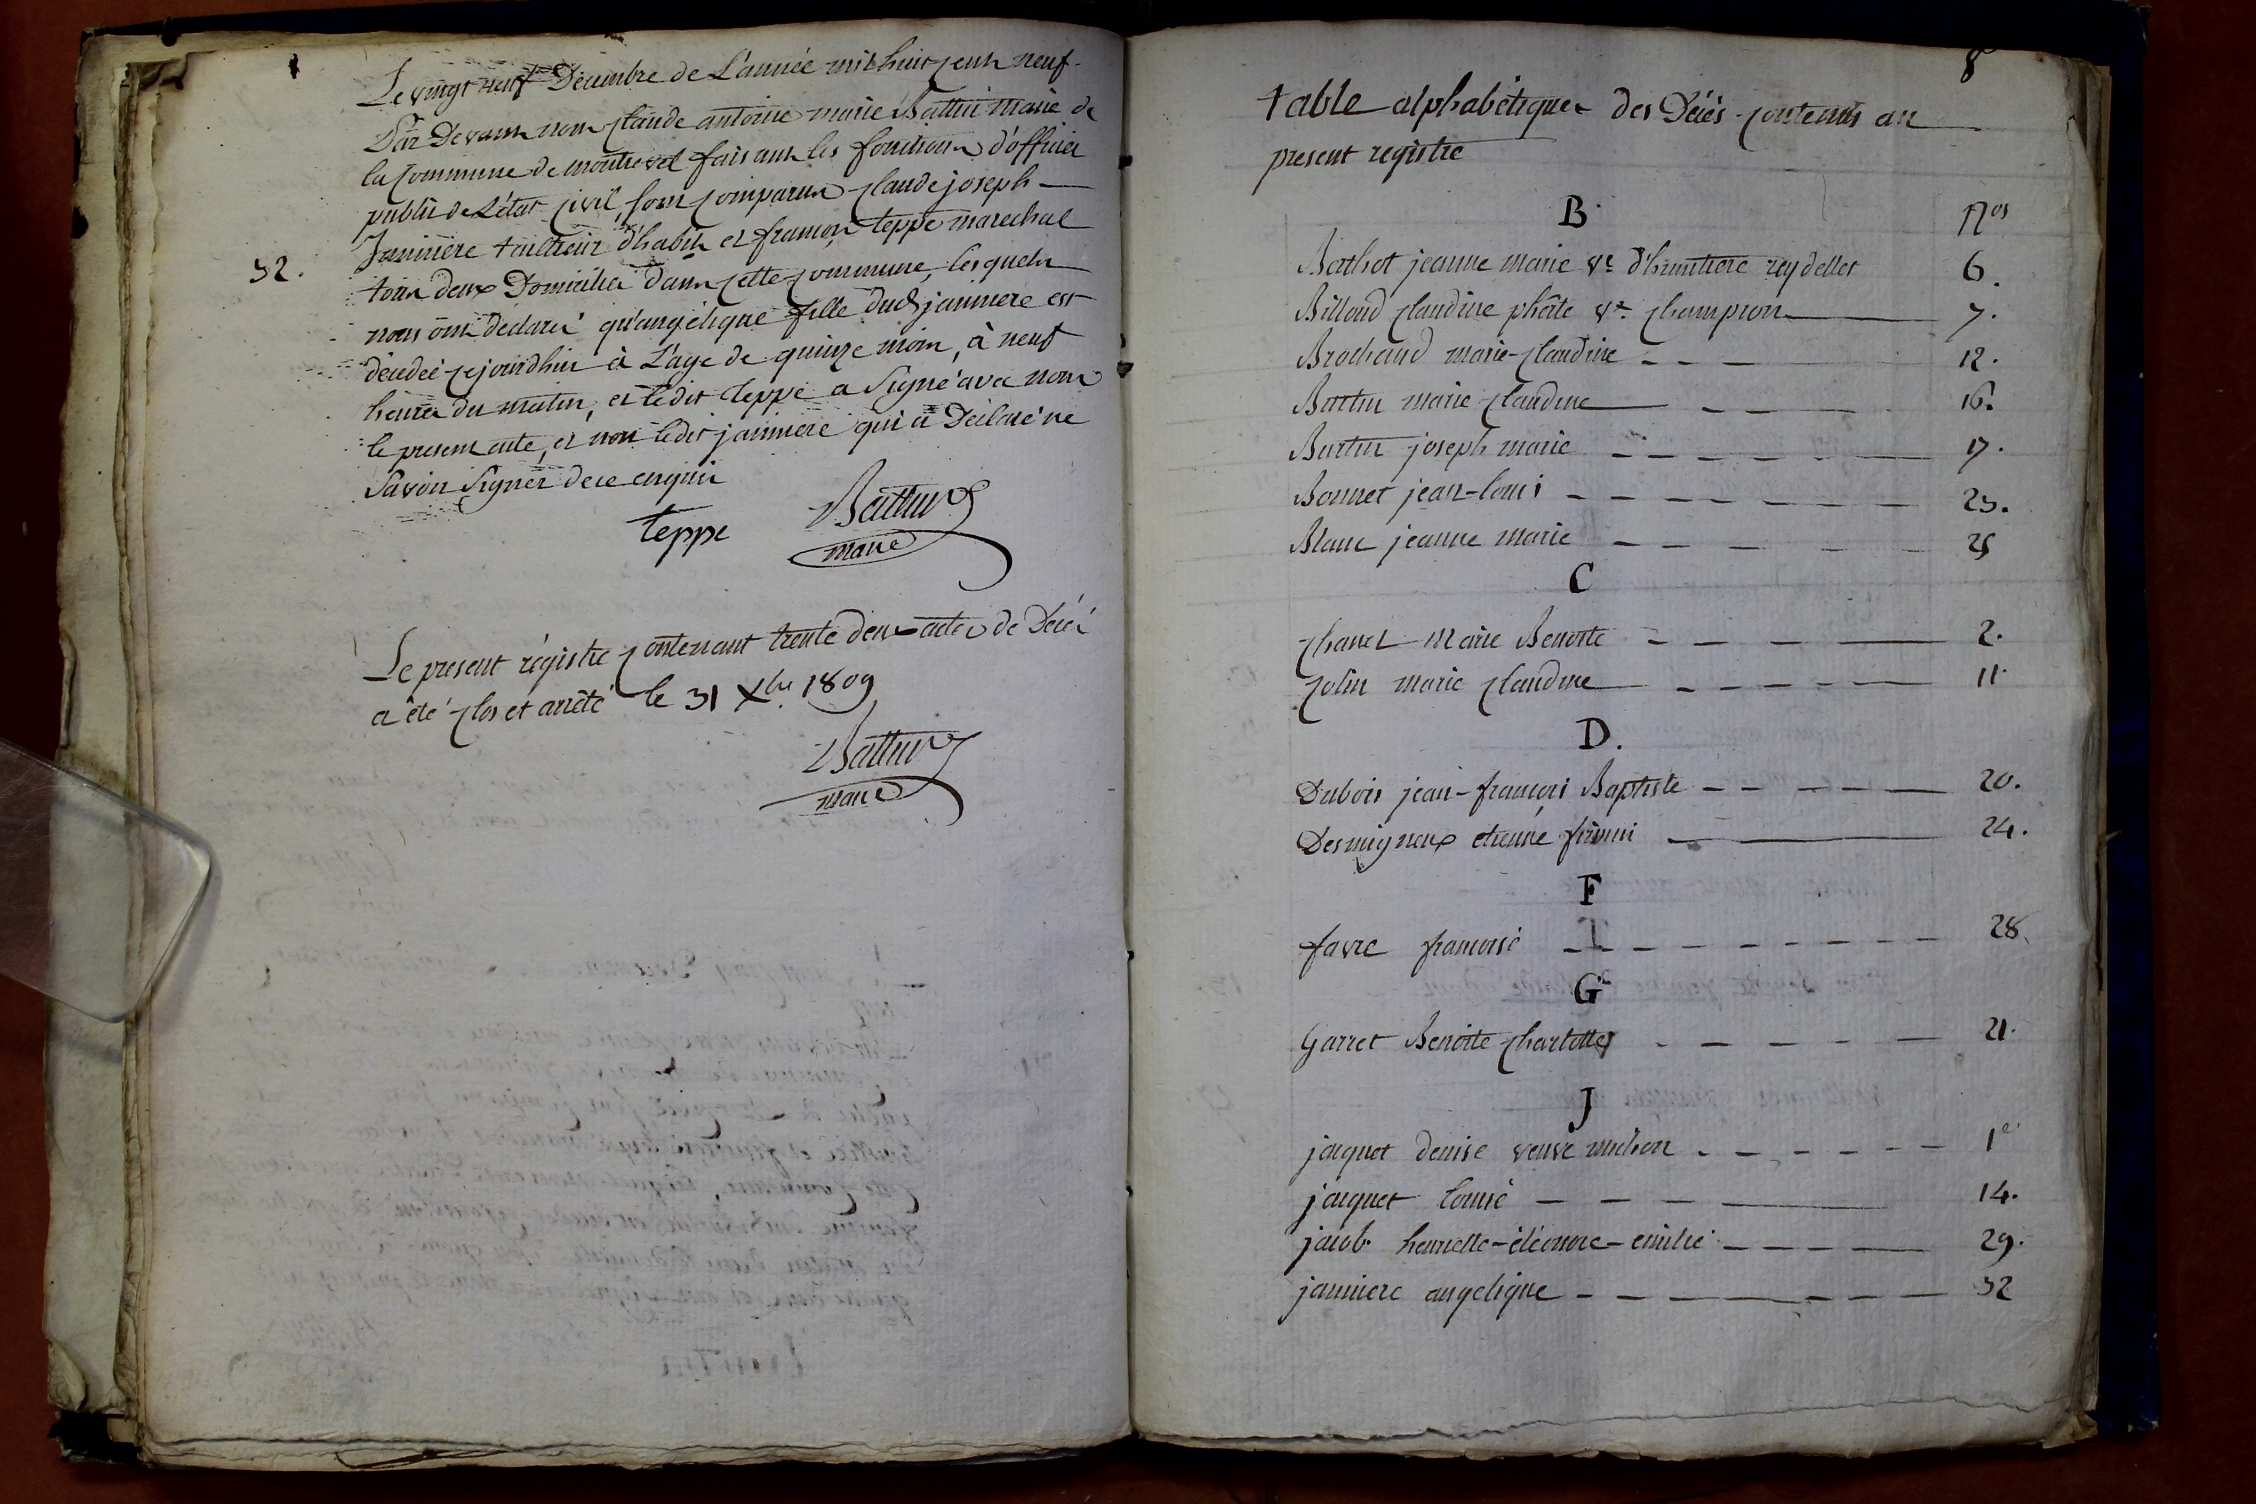 Le vingt neuf Décembre de L'année mil huit cent neuf
Par Devant nous Claude antoine marie Battin Maire de
la Commune de montrevel faisant les fonctions d'officier
public de L'état civil, sont comparus Claude joseph
Janiniere tailleur d'habits et françois teppe marechal
32.
tous deux Domiciliés dans cette commune, lesquels
nous ont declaré qu'angelique fille dud janiniere est
décédée cejourdhui à L'age de quinze mois, à neuf
heures du matin, et ledit teppe a Signé avec nous
le present acte, et non ledit janiniere qui a Déclaré ne
Savoir Signer de ce enquis
teppe Battin
maire
Le present régistre contenant trente deux actes de Décés
a été clos et arrêté le 31 Xbre 1809
Battin
maire
8
table alphabétique des Décés contenus au
present registre
B. Nos
Bathet jeanne marie ve d'humbert reydellet 6.
Billoud claudine ve champion 7.
Brochand marie-claudine 12.
Battin marie claudine 16.
Battin joseph marie 17.
Bonnet jean-louis 23.
Blanc jeanne marie 25
C
Chanel Marie Benoite 2.
Colin marie claudine 11.
D.
Dubois jean-françois Baptiste 20.
Desvigneux etienne firmin 24.
F
favre françoise 28.
G
Garret Benoite charlotte 21.
J
jaquet denise veuve michon 1er
jaquet louise 14.
jacob henriette-éléonore-emilie 29.
janiniere angelique 32